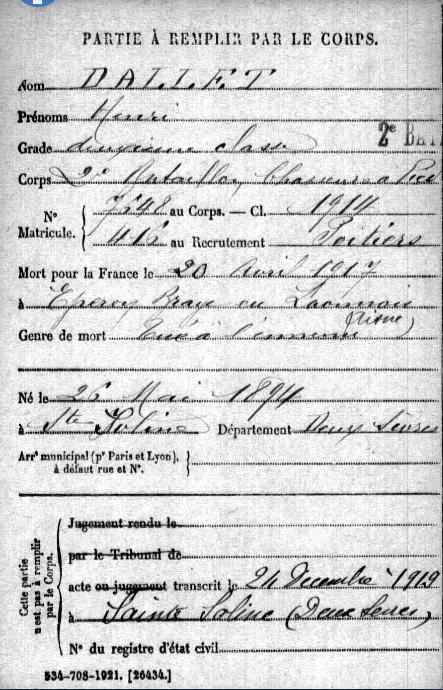 PARTIE À REMPLIR PAR LE CORPS.
Nom DALLET
Prénoms Henri
Grade deuxième classe
2e BAT
Corps 2e Bataillon Chasseurs à Pied
N° Matricule. 7548 au Corps. — Cl. 1914
416 au Recrutement Poitiers
Mort pour la France le 20 Avril 1917
à Epercy Braye en Laonnois
(Aisne)
Genre de mort Tué à l'ennemi
Né le 26 Mai 1894
à Ste Soline Département Deux Sèvres
Arrt municipal (pr Paris et Lyon),
à défaut rue et N°.
Cette partie n'est pas à remplir par le Corps.
Jugement rendu le
par le Tribunal de
acte ou jugement transcrit le 24 Décembre 1919
à Sainte Soline (Deux Sèvres)
N° du registre d'état civil
534-708-1921. [26434.]